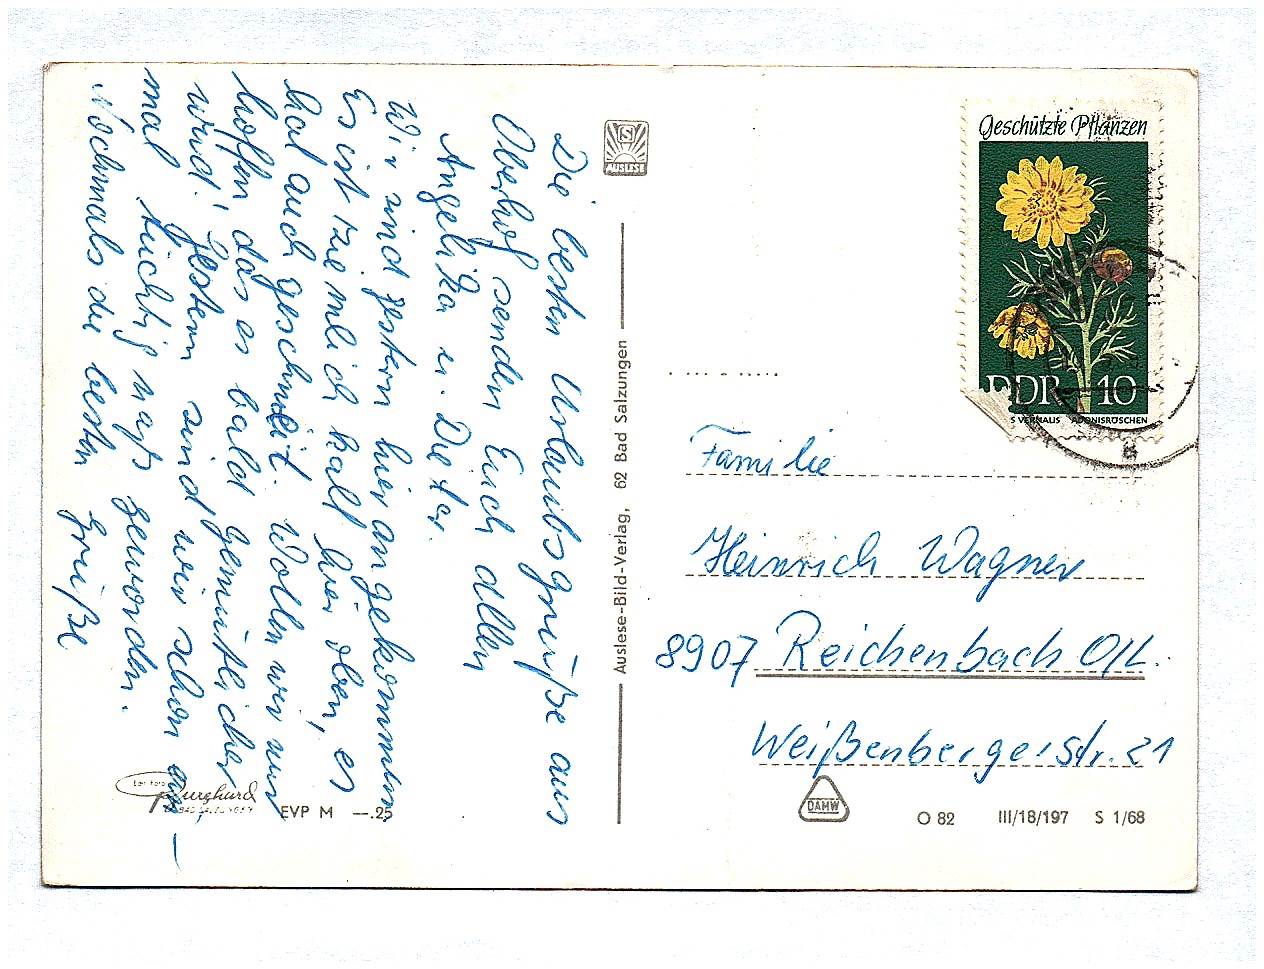 Die besten Urlaubsgrüße aus
Oberhof senden Euch allen
Angelika u. Dieter.
Wir sind gestern hier angekommen
Es ist ziemlich kalt hier oben, es
hat auch geschneit. Wollen wir nur
hoffen das es bald gemütlicher
wird! Gestern sind wir schon ein-
mal tüchtig naß geworden.
Nochmals die besten Grüße
EVP M —.25
AUSLESE
Auslese-Bild-Verlag, 62 Bad Salzungen
Geschützte Pflanzen
DDR 10
S VERNALIS ADONISRÖSCHEN
Familie
Heinrich Wagner
8907 Reichenbach O/L.
Weißenbergerstr. 21
DAMW
O 82 III/18/197 S 1/68